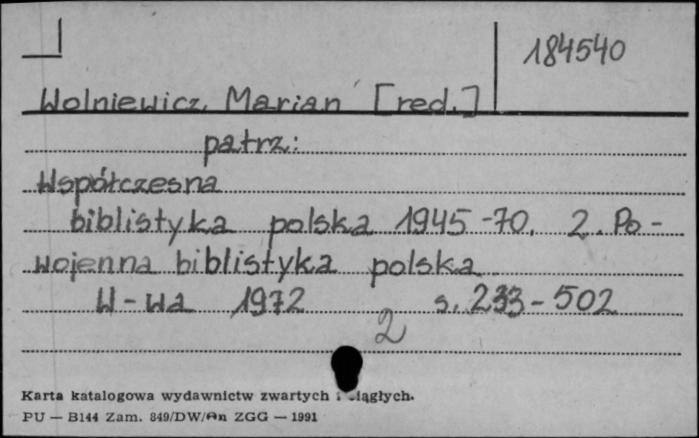 184540
Wolniewicz, Marian [red.]
patrz:
Współczesna
biblistyka polska 1945-70. 2. Po-
wojenna biblistyka polska
W-wa 1972 s. 233-502
2
Karta katalogowa wydawnictw zwartych i ciągłych.
PU — B144 Zam. 849/DW/An ZGG — 1991